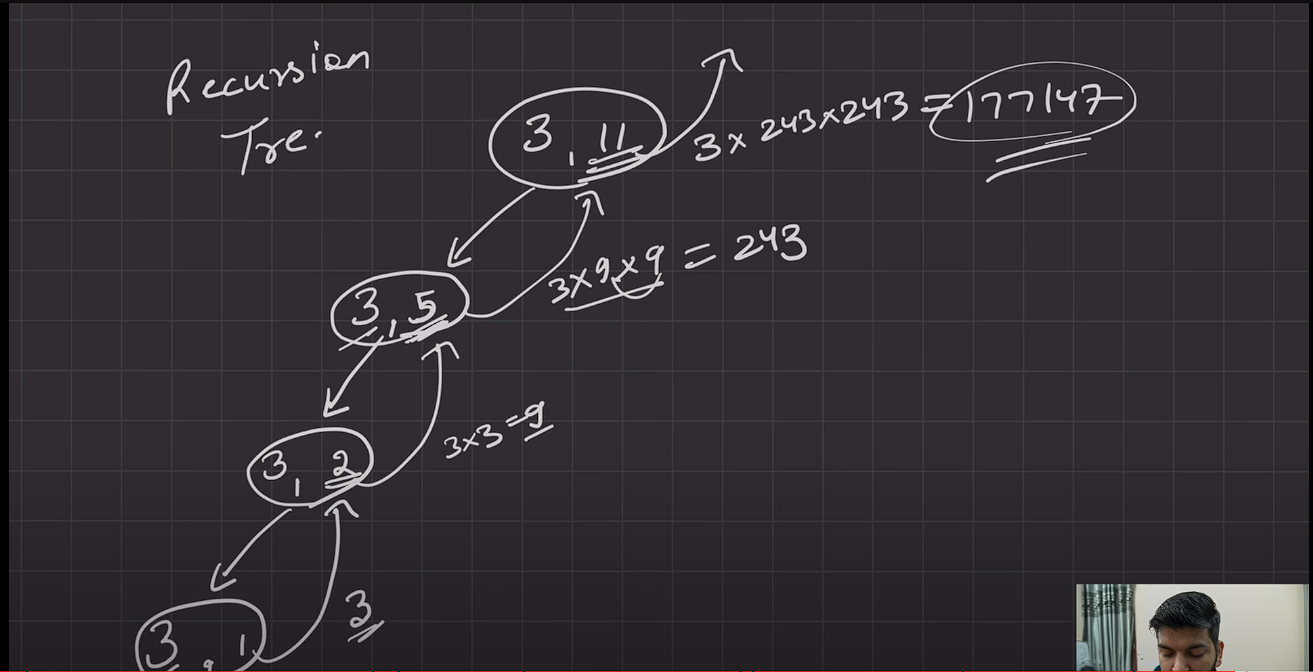 Recursion
Tre.
3, 11
3 × 243 × 243 = 177147
3, 5
3×9×9 = 243
3, 2
3×3 = 9
3, 1
3